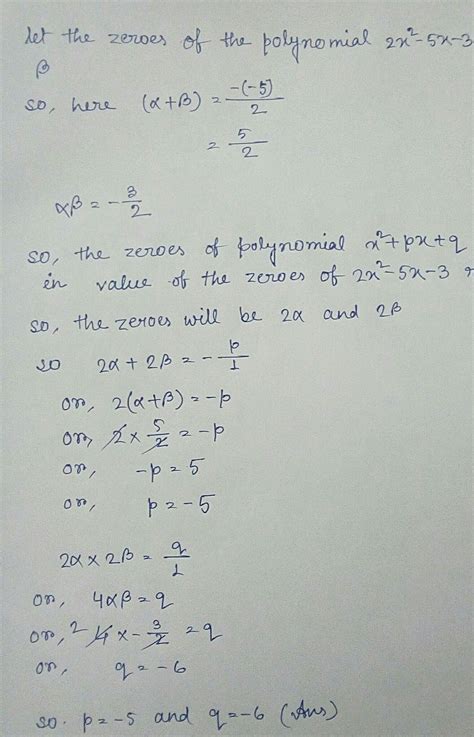 let the zeroes of the polynomial 2x²-5x-3
β
so, here (α+β) = -(-5)/2
= 5/2
αβ = -3/2
so, the zeroes of polynomial x²+px+q
in value of the zeroes of 2x²-5x-3
so, the zeroes will be 2α and 2β
so 2α + 2β = -p/1
or, 2(α+β) = -p
or, 2 × 5/2 = -p
or, -p = 5
or, p = -5
2α × 2β = q/1
or, 4αβ = q
or, 2 4 × -3/2 = q
or, q = -6
so. p = -5 and q = -6 (Ans)